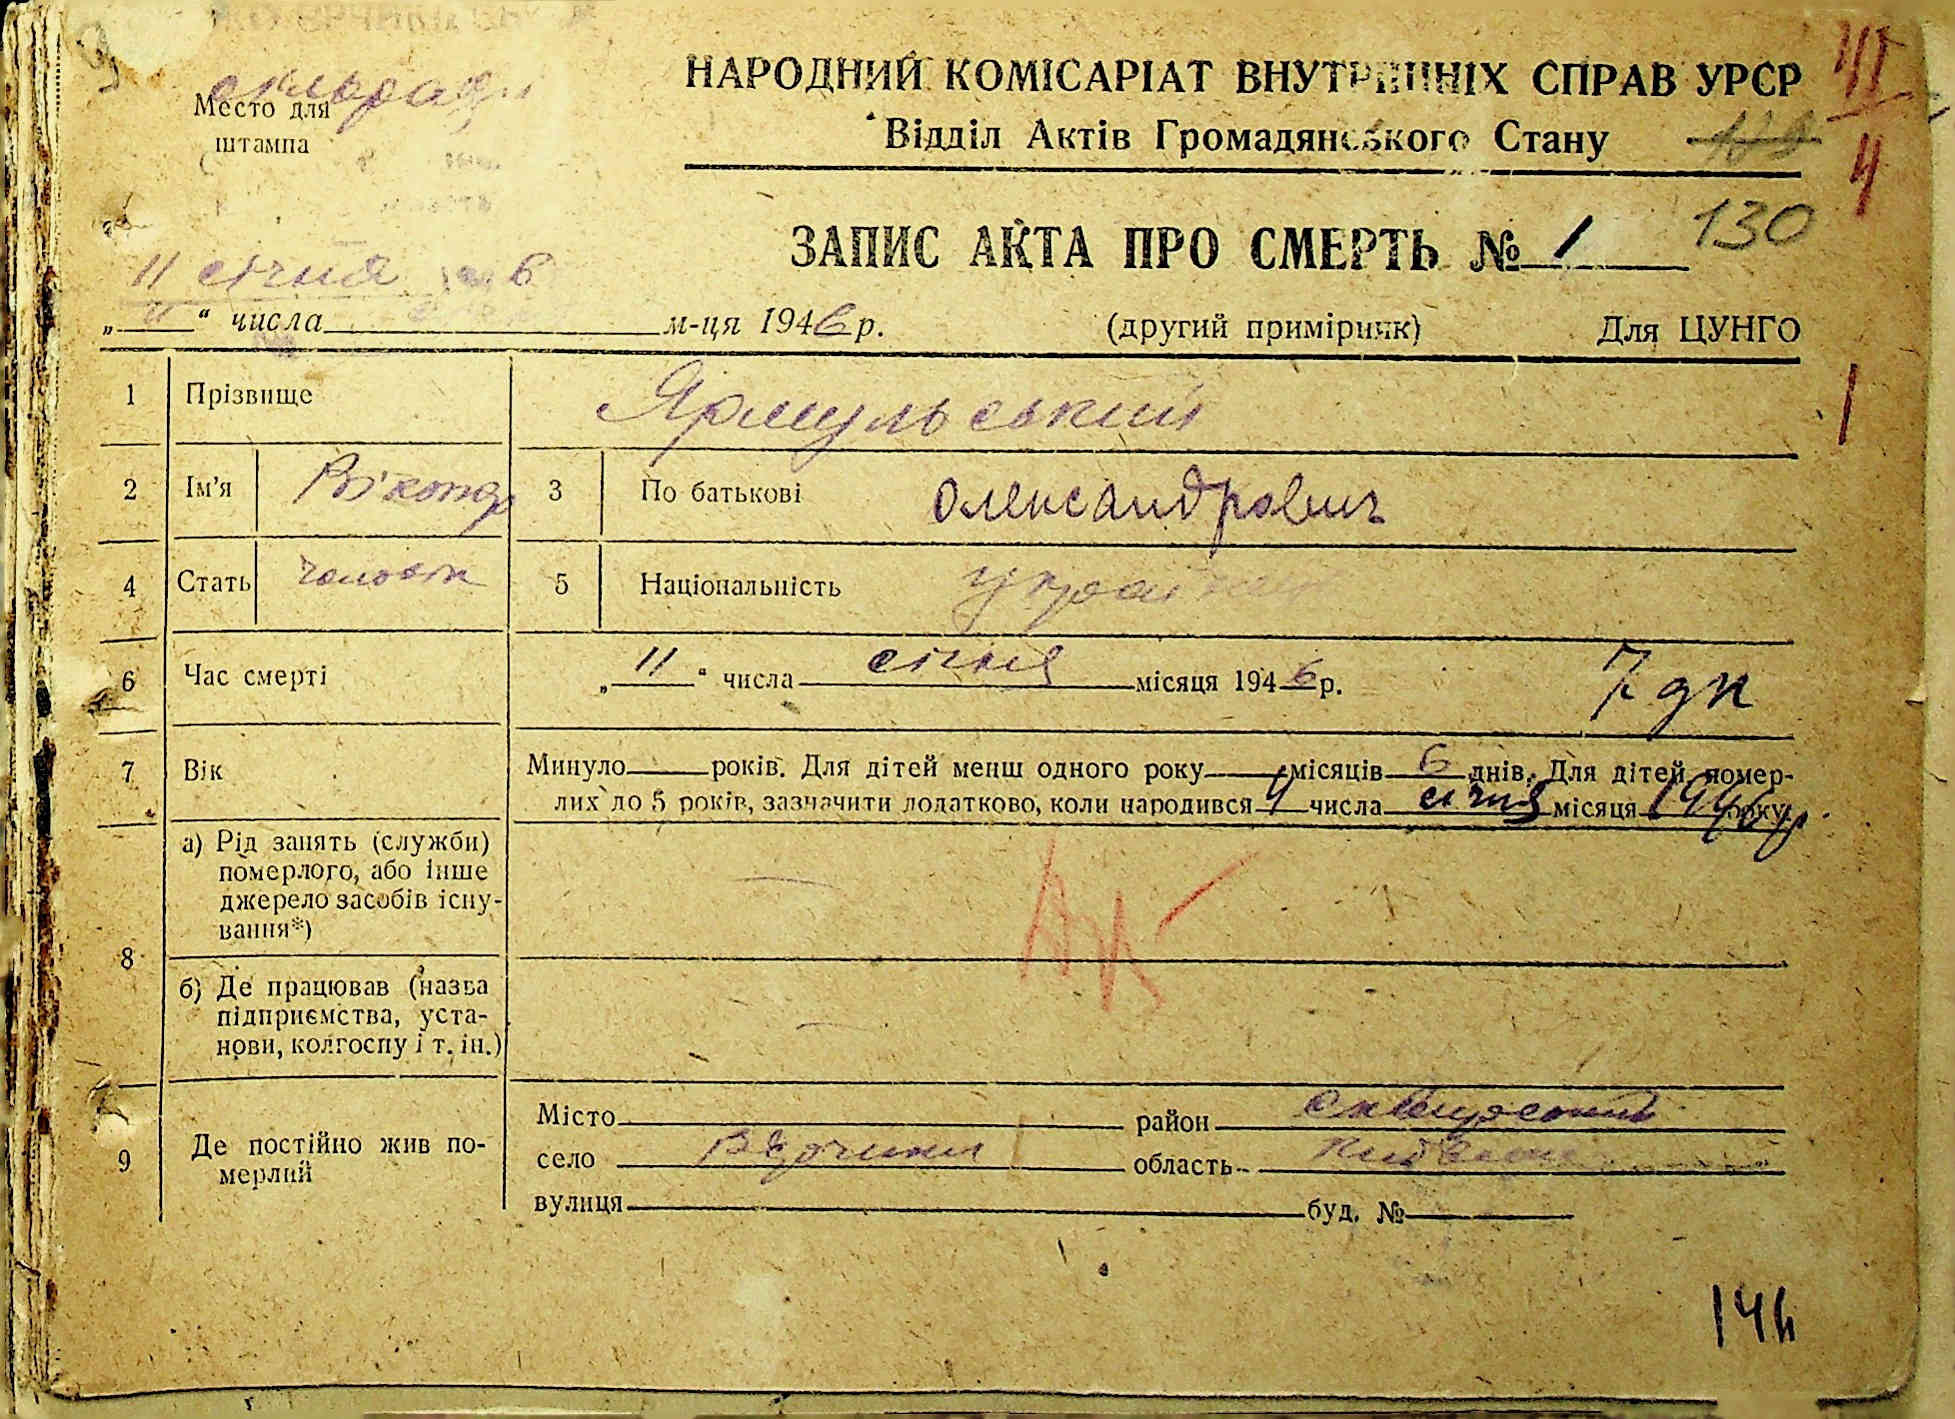 НАРОДНИЙ КОМІСАРІАТ ВНУТРІШНІХ СПРАВ УРСР
Відділ Актів Громадянського Стану
Место для
штампа
ЗАПИС АКТА ПРО СМЕРТЬ № 1
130
11 січня 6
„ 11 “ числа м-ця 1946 р. (другий примірник) Для ЦУНГО
1 Прізвище Ярмульський
2 Ім'я Віктор 3 По батькові Олександрович
4 Стать чоловік 5 Національність
6 Час смерті „ 11 “ числа січня місяця 1946 р. 7 дн
7 Вік Минуло років. Для дітей менш одного року місяців 6 днів. Для дітей, помер-
лих до 5 років, зазначити додатково, коли народився 4 числа січня місяця 1946 року.
8 а) Рід занять (служби)
померлого, або інше
джерело засобів існу-
вання*)
б) Де працював (назва
підприємства, уста-
нови, колгоспу і т. ін.)
9 Де постійно жив по-
мерлий
Місто район Сквирський
село область
вулиця буд. №